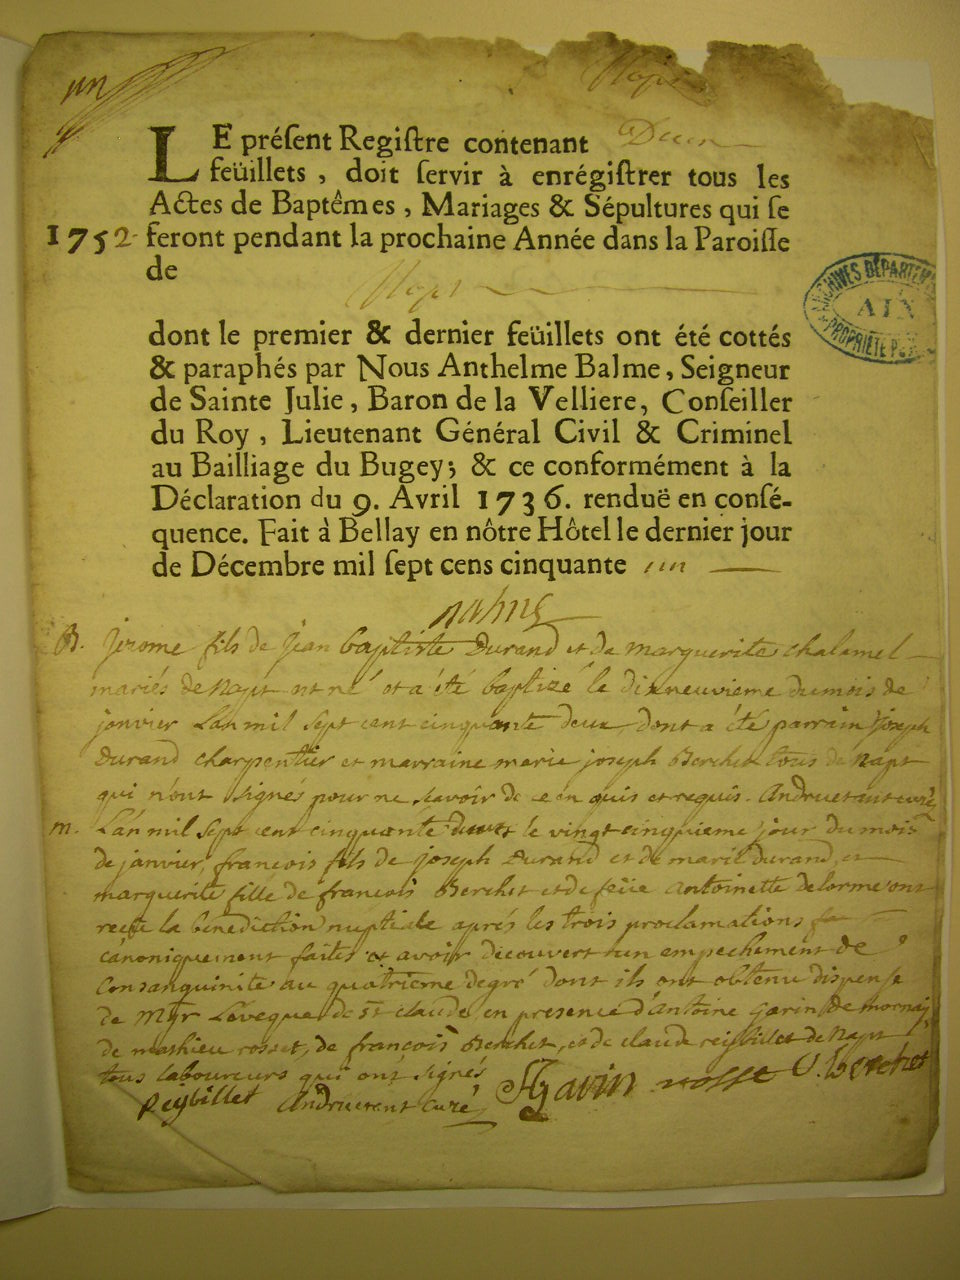 un
Napt
LE préſent Regiſtre contenant Deux
feüillets, doit ſervir à enrégiſtrer tous les
Actes de Baptêmes, Mariages & Sépultures qui ſe
1752 feront pendant la prochaine Année dans la Paroiſſe
de
Napt
ARCHIVES DÉPARTEM
AIN
PROPRIÉTÉ P
dont le premier & dernier feüillets ont été cottés
& paraphés par Nous Anthelme Balme, Seigneur
de Sainte Julie, Baron de la Velliere, Conſeiller
du Roy, Lieutenant Général Civil & Criminel
au Bailliage du Bugey; & ce conformément à la
Déclaration du 9. Avril 1736. renduë en conſé-
quence. Fait à Bellay en nôtre Hôtel le dernier jour
de Décembre mil ſept cens cinquante un
Balme
B. jerome fils de jean baptiste Durand et de marguerite chalamel
mariés de Napt est né et a été baptizé le dixneuvieme du mois de
janvier L'an mil sept cent cinquante deux dont a été parrain joseph
Durand charpentier et marraine marie joseph Berchet tous de Napt
qui n'ont signés pour ne scavoir de ce enquis et requis. Andruetant curé
m. L'an mil sept cent cinquante deux le vingt cinquieme jour du mois
de janvier, françois fils de joseph Durand et de marie durand, et
marguerite fille de françois Berchet et de feüe Antoinette delorme ont
receu la bénédiction nuptiale aprés les trois proclamations
cánoniquement faites et avoir découvert un empechement de
Consanguinité au quatrieme degré dont ils ont obtenu dispense
de Mgr Léveque de St claude, en presence d'Antoine Gavin de mornay,
de mathieu rosset, de françois Berchet, et de claude reybillet de Napt
tous laboureurs qui ont signés
Reybillet Andruetant curé Gavin rosset Berchet